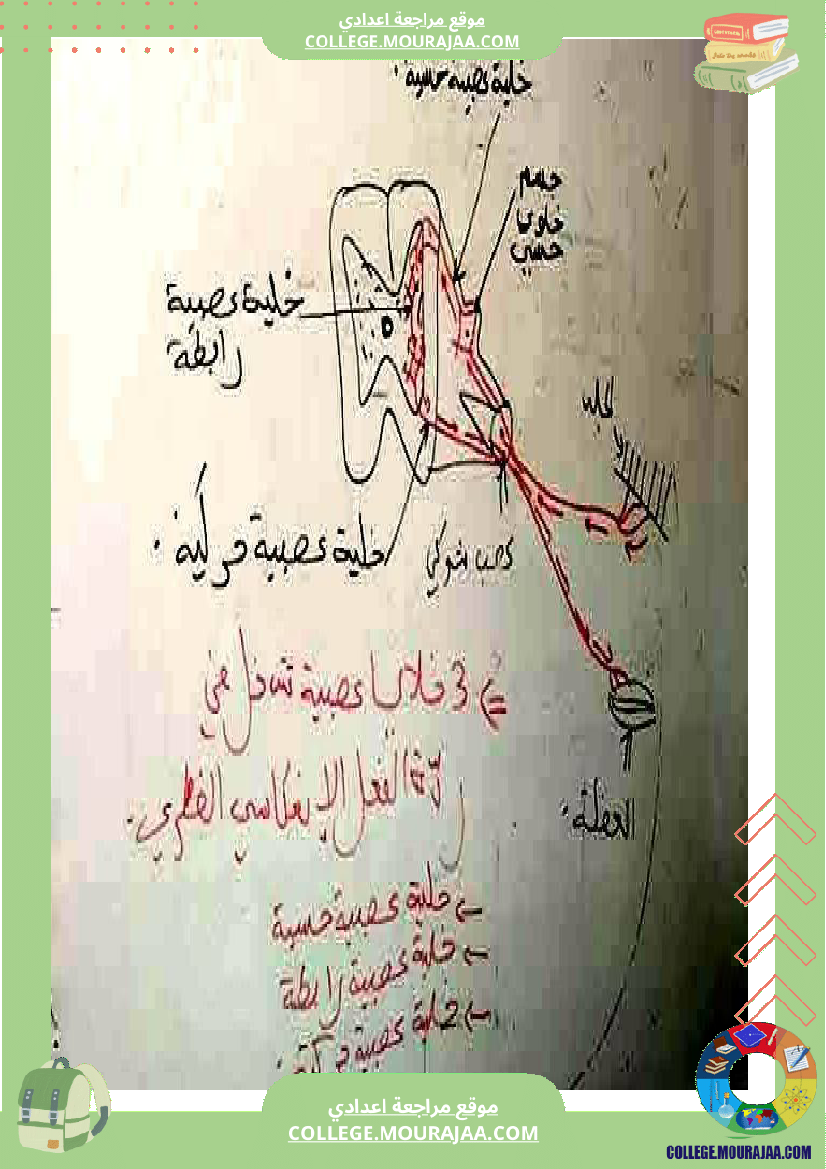 موقع مراجعة اعدادي
COLLEGE.MOURAJAA.COM
خلية عصبية حسية.
جسم
خلوي
حسي
خلية عصبية
رابطة
الجلد
خلية عصبية حركية.
عصب شوكي
=) 3 خلايا عصبية تتدخل في
الفعل الإنعكاسي الفطري.
العضلة.
خلية عصبية حسية
خلية عصبية رابطة
خلية عصبية حركية.
موقع مراجعة اعدادي
COLLEGE.MOURAJAA.COM
COLLEGE.MOURAJAA.COM